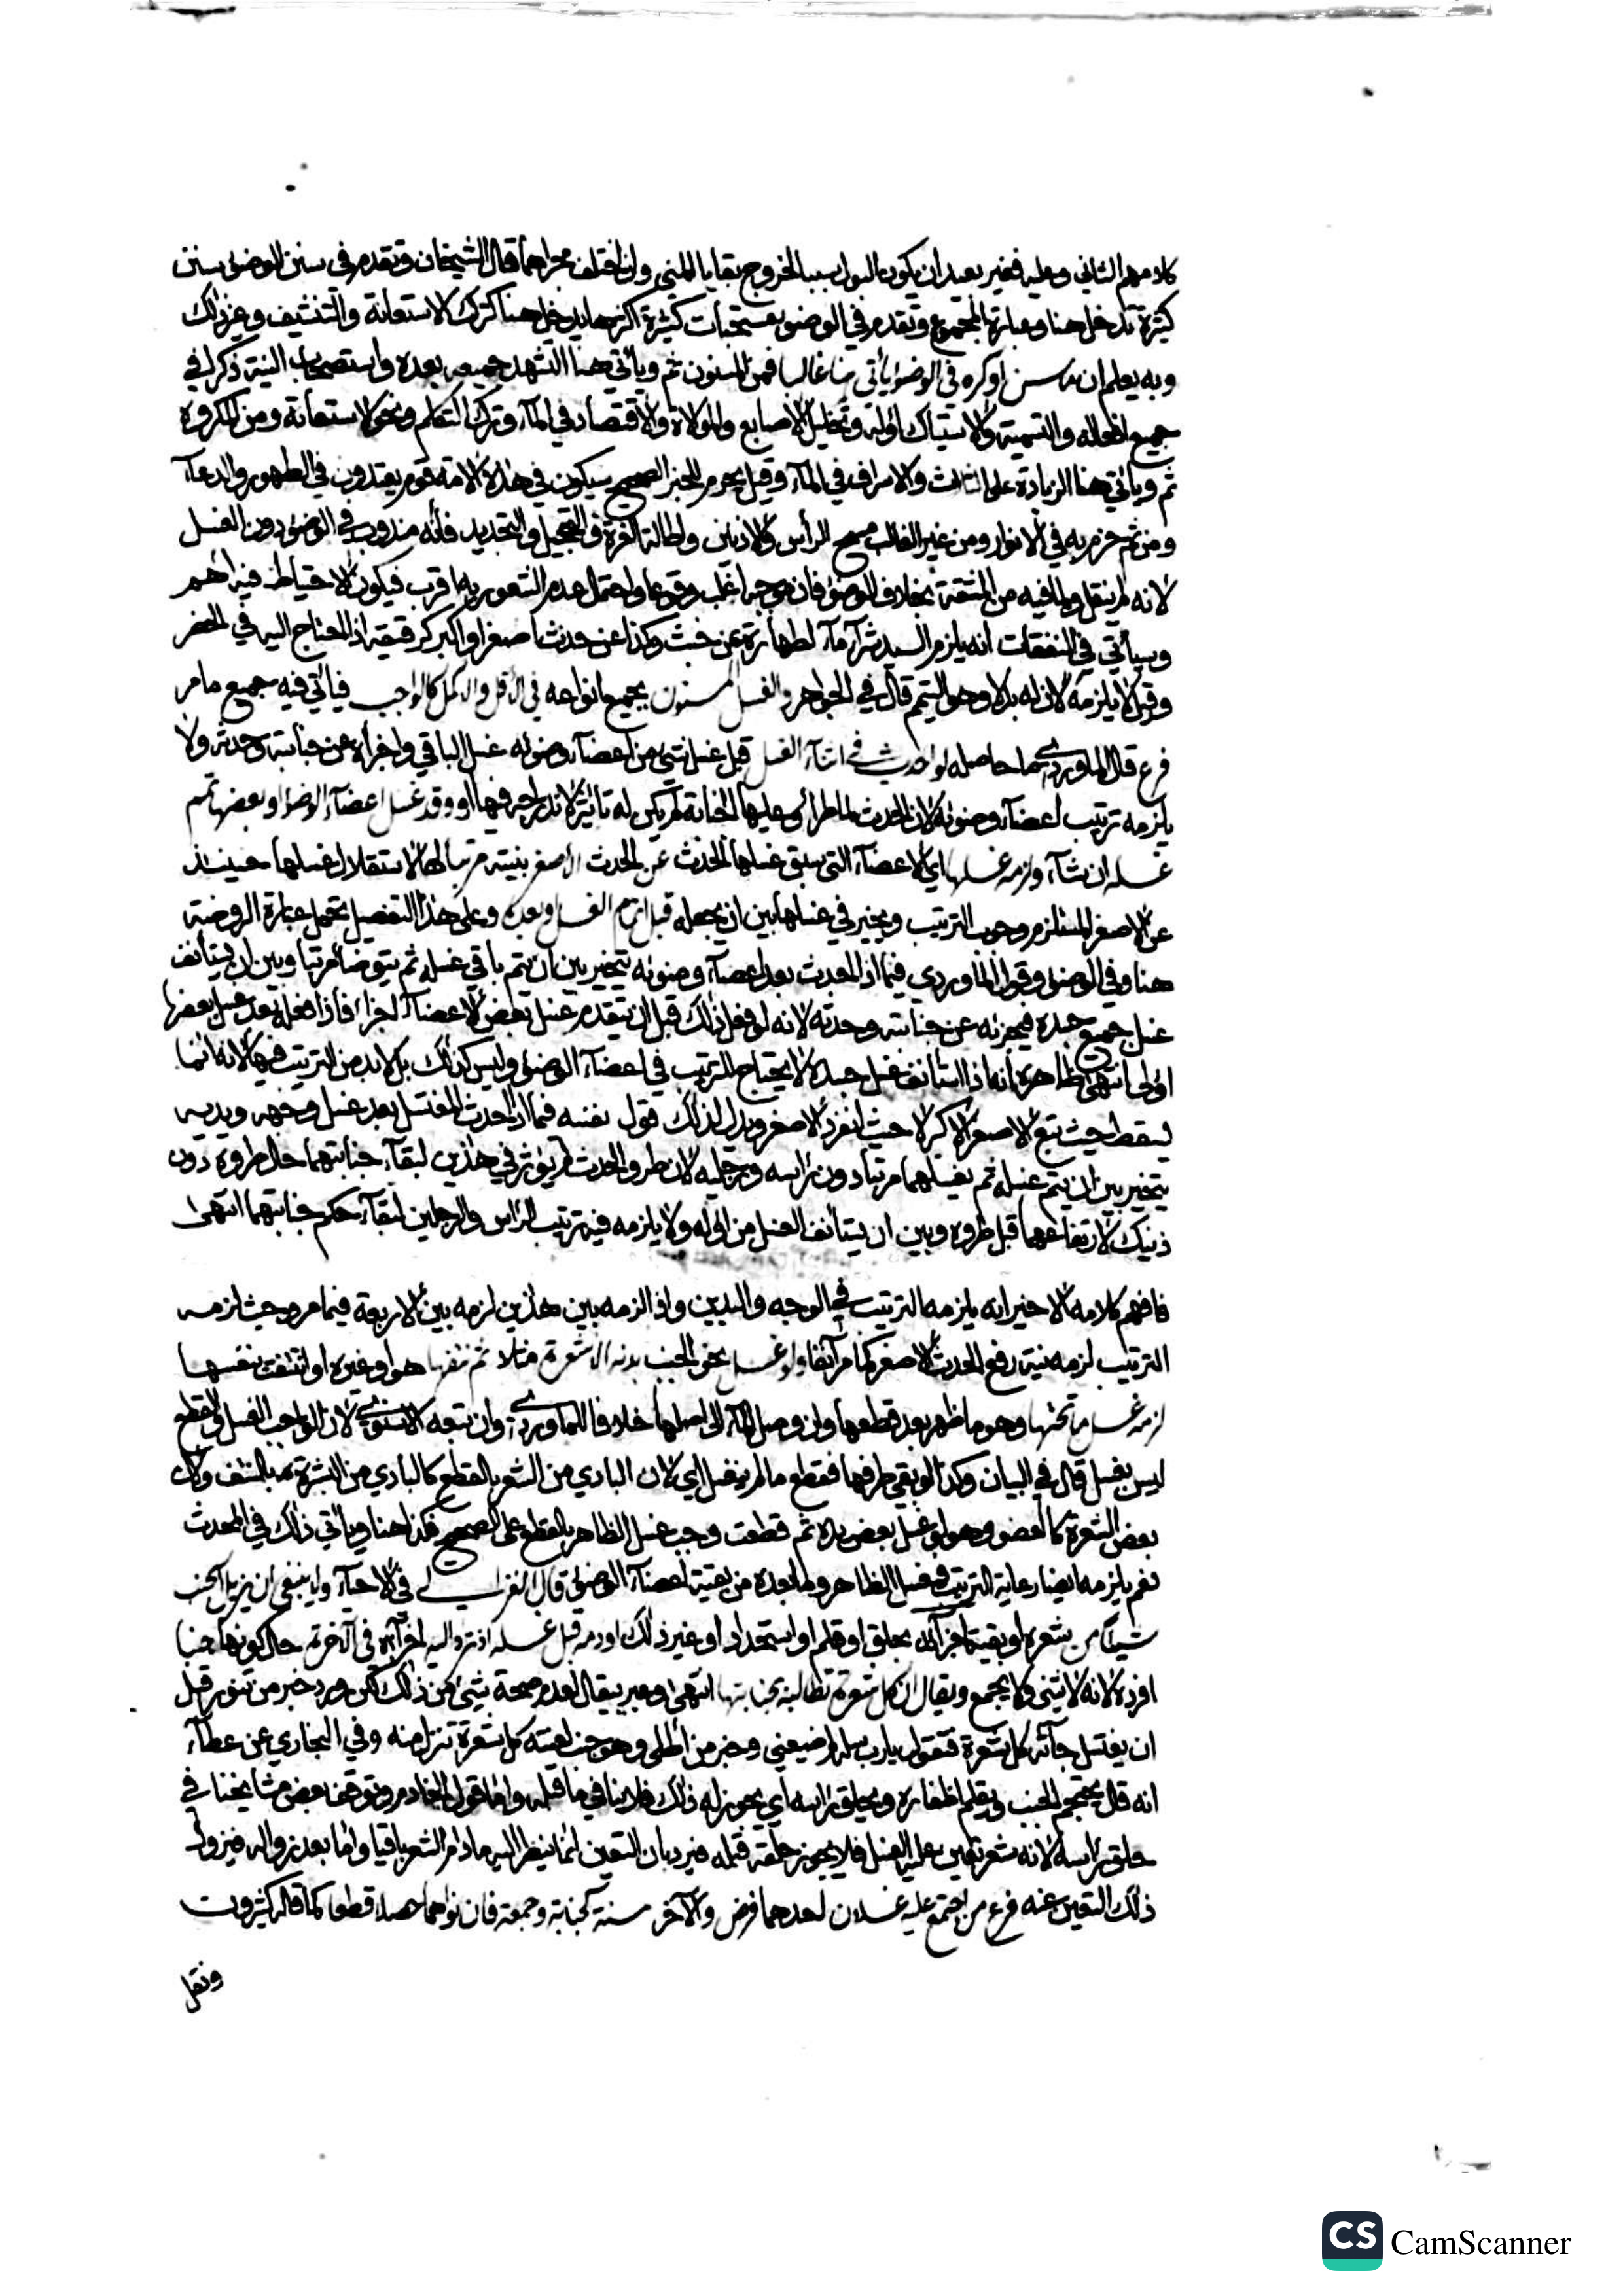 كلامهم الثاني وعليه فغير بعيد ان يكون البول سببا لخروج بقايا المني وان اختلف مجراهما قال الشيخان وتقدم في سنن الوضوء سنن
كثيرة تدخل هنا وعبارة المجموع وتقدم في الوضوء مستحبات كثيرة اكثرها يدخل هنا كترك الاستعانة والتنشيف وغير ذلك
وبه يعلم ان ما سن او كره في الوضوء يأتي هنا غالبا فمن المسنون ثم ويأتي هنا التشهد جميعه بعده واستصحاب النية ذكرا في
جميع افعاله والتسمية والاستياك اوله وتخليل الاصابع والموالاة والاقتصاد في الماء وترك التكلم ونحو الاستعانة ومن المكروه
ثم ويأتي هنا الزيادة على الثلاث والاسراف في الماء وقيل يحرم للخبر الصحيح سيكون في هذه الامة قوم يعتدون في الطهور والدعاء
ومن ثم جزم به في الانوار ومن غير الغالب مسح الرأس والاذنين واطالة الغرة والتحجيل والتجديد فانه مندوب في الوضوء دون الغسل
لانه لم ينقل ولما فيه من المشقة بخلاف الوضوء فان موجبه اغلب وقوعا واحتمال عدم الشعور به اقرب فيكون الاحتياط فيه اهم
وسيأتي في النفقات انه يلزم السيد شراء ماء لطهارة عن خبث وكذا عن حدث اصغر او اكبر كرقيقه اذ المحتاج اليه في الحضر
وقيل لا يلزمه لان له بدلا وهو التيمم قال في الجواهر والغسل المسنون بجميع انواعه في الاقل والاكمل كالواجب فيأتي فيه جميع ما مر
فرع قال الماوردي ما حاصله لو احدث في اثناء الغسل قبل غسل شيء من اعضاء وضوئه غسل الباقي واجزأه عن جنابته وحدثه ولا
يلزمه ترتيب اعضاء وضوئه لان الحدث لما طرأ وعليها الجنابة لم يكن له تأثير لاندراجه فيها او وقد غسل اعضاء الوضوء او بعضها تمم
غسله ان شاء ولزمه غسلها اي الاعضاء التي سبق غسلها الحدث عن الحدث الاصغر بنيته مرتبا لها لاستقلال غسلها حينئذ
عن الاصغر المستلزم وجوب الترتيب ويخير في غسلها بين ان يجعله قبل اتمام الغسل وبعده وعلى هذا التفصيل تحمل عبارة الروضة
هنا وفي الوضوء وقول الماوردي فيما اذا احدث بعد اعضاء وضوئه يتخير بين ان يتم باقي غسله ثم يتوضأ مرتبا وبين ان يستأنف
غسل جميع جسده فيجزئه عن جنابته وحدثه لانه لو فعل ذلك قبل ان يتقدم غسل بعض الاعضاء اجزأ فاذا فعله بعد غسل بعضها
اولى انتهى ظاهره انه اذا استأنف غسل جسده لا يحتاج للترتيب في اعضاء الوضوء وليس كذلك بل لا بد من الترتيب فيها لانه انما
يسقط حيث تبع الاصغر الاكبر لا حيث انفرد الاصغر ويدل لذلك قول نفسه فيما اذا احدث المغتسل بعد غسل وجهه ويديه
يتخير بين ان يتم غسله ثم يغسلهما مرتبا دون رأسه ورجليه لان طرو الحدث لم يؤثر في هذين لبقاء جنابتهما حال طروه دون
ذينك لارتفاعهما قبل طروه وبين ان يستأنف الغسل من اوله ولا يلزمه فيه ترتيب الرأس والرجلين لبقاء حكم جنابتهما انتهى
فافهم كلامه الاخير انه يلزمه الترتيب في الوجه واليدين واذا لزمه بين هذين لزمه بين الاربعة فيما مر وحيث لزمه
الترتيب لزمه نية رفع الحدث الاصغر كما مر آنفا ولو غسل نحو الجنب بدنه الا شعرة مثلا ثم نتفها هو او غيره او انتتفت بنفسها
لزمه غسل ما تحتها وهو ما ظهر بعد قطعها وان وصل الماء الى اصلها خلافا للماوردي وان تبعه الاسنوي لان الواجب الغسل والقطع
ليس بغسل قال في البيان وكذا لو بقي طرفها فقطع ما لم ينغسل اي لان البادي من الشعر بالقطع كالبادي من البشرة به بالنتف وكان
بعض الشعرة كالعضو وهو لو غسل بعض يده ثم قطعت وجب غسل الظاهر بالقطع على الصحيح فكذا هنا ويأتي ذلك في المحدث
نعم يلزمه ايضا رعاية الترتيب فيغسل الظاهر وما بعده من بقية اعضاء الوضوء قال الغزالي في الاحياء ولا ينبغي ان يزيل الجنب
شيئا من شعره او بقية اجزائه بحلق او قلم او استحداد او غير ذلك او دم قبل غسله اذ ترد اليه اجزاؤه في آخرته حال كونها جنبا
افرده لانه لا يثنى ولا يجمع ويقال ان كل شعرة تطالبه بجنابتها انتهى وعبر بيقال لعدم صحة شيء من ذلك لكن ورد خبر من تنور قبل
ان يغتسل جاءته كل شعرة فتقول يا رب سله لم ضيعني وخبر من اطلى وهو جنب لعنته كل شعرة تنزل منه وفي البخاري عن عطاء
انه قال يحتجم الجنب ويقلم اظفاره ويحلق رأسه اي يجوز له ذلك فلا ينافي ما قبله واما قول الخادم وتوقف بعض مشايخنا في
حلق رأسه لانه شعر تعين عليه الغسل فلا يجوز حلقه قبله فيرد بان التعين انما ينظر اليه ما دام الشعر باقيا واما بعد زواله فيزول
ذلك التعين عنه فرع من اجتمع عليه غسلان احدهما فرض والآخر سنة كجنابة وجمعة فان نواهما حصلا قطعا كما قاله كثيرون
ونقل
CS CamScanner